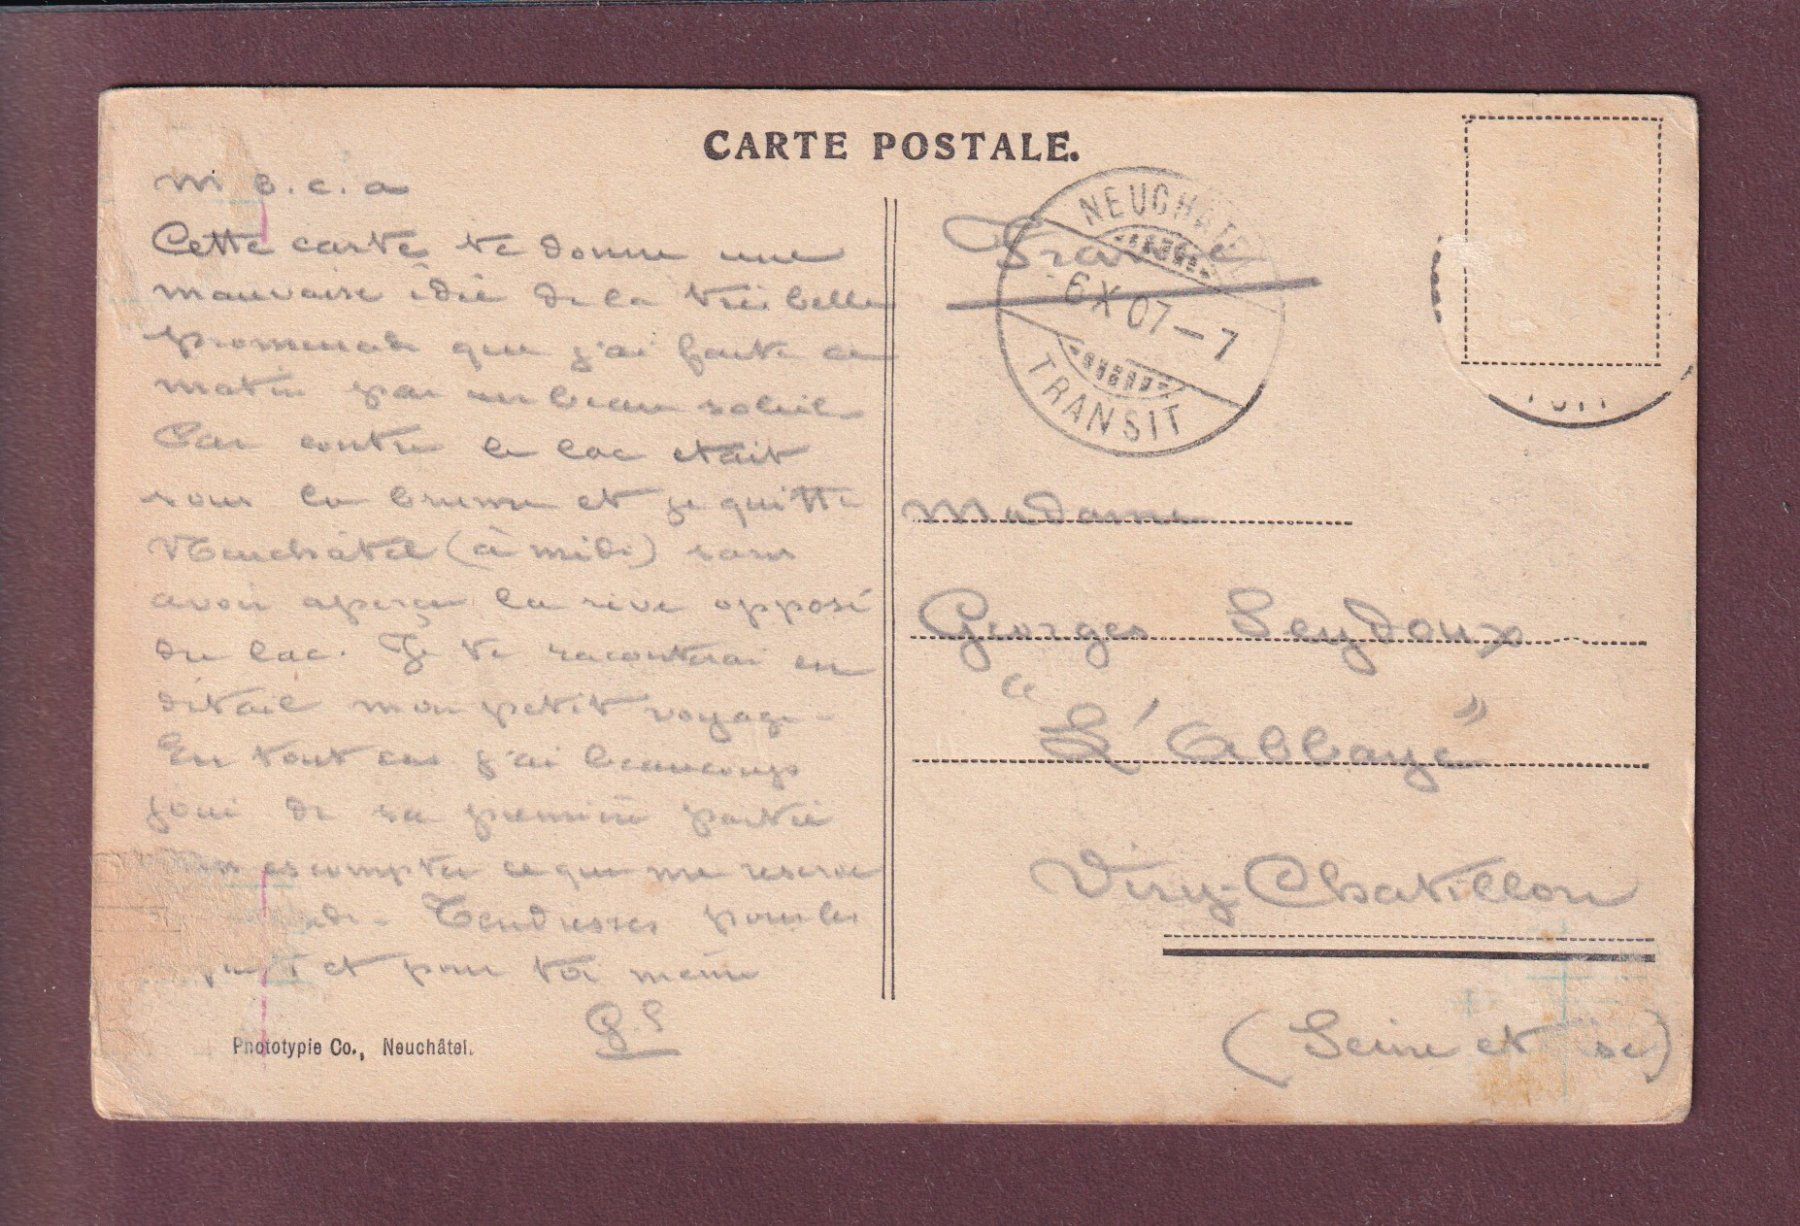 CARTE POSTALE.
m b. c. a
Cette carte te donne une
mauvaise idée de la très belle
promenade que j'ai faite ce
matin par un beau soleil
Par contre le lac était
sous la brume et je quitte
Neuchâtel (à midi) sans
avoir aperçu la rive opposé
du lac. Je te raconterai en
détail mon petit voyage -
En tout cas j'ai beaucoup
joui de sa première partie
escompter ce que me reserve
Tendresses pour les
et pour toi même
G.S
Phototypie Co., Neuchâtel.
France
NEUCHATEL
6 X 07 - 7
TRANSIT
Madame
Georges Seydoux
"L'Abbaye"
Viry-Chatillon
(Seine et se)